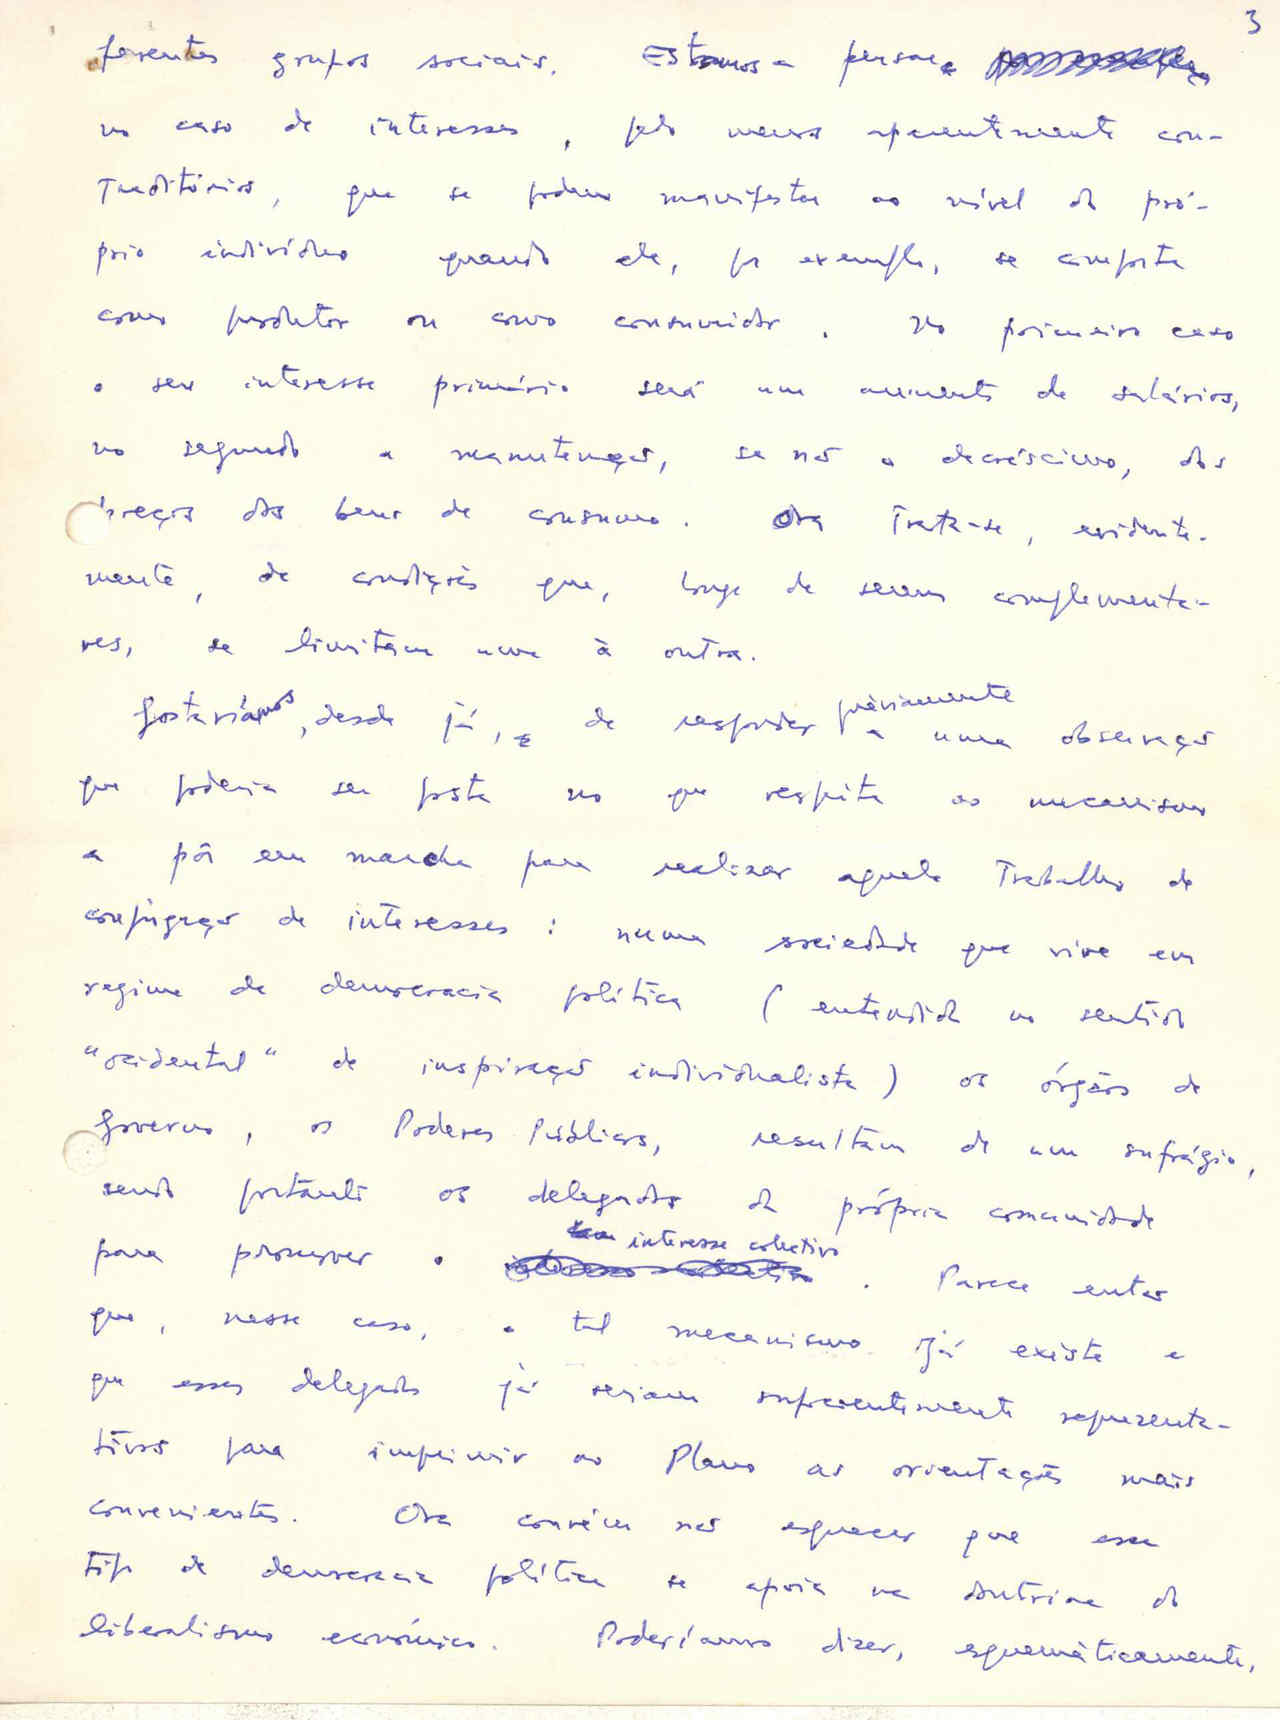 3
ferentes grupos sociais. Estamos a pensar
no caso de interesses, pelo menos aparentemente con-
traditórios, que se podem manifestar ao nível do pró-
prio indivíduo quando ele, por exemplo, se comporta
como produtor ou como consumidor. No primeiro caso
o seu interesse primário será um aumento de salários,
no segundo a manutenção, se não o decréscimo, dos
preços dos bens de consumo. Ora trata-se, evidente-
mente, de condições que, longe de serem complementa-
res, se limitam uma à outra.
previamente
Gostaríamos, desde já, de responder a uma observação
que poderia ser posta no que respeita ao mecanismo
a pôr em marcha para realizar aquele trabalho de
conjugação de interesses: numa sociedade que vive em
regime de democracia política (entendida no sentido
"ocidental" de inspiração individualista) os órgãos de
Governo, os Poderes Públicos, resultam de um sufrágio,
sendo portanto os delegados da própria comunidade
interesse colectivo
para promover o . Parece então
que, nesse caso, o tal mecanismo já existe e
que esses delegados já seriam suficientemente representa-
tivos para imprimir ao Plano as orientações mais
convenientes. Ora convém não esquecer que esse
tipo de democracia política se apoia na doutrina do
liberalismo económico. Poderíamos dizer, esquemàticamente,